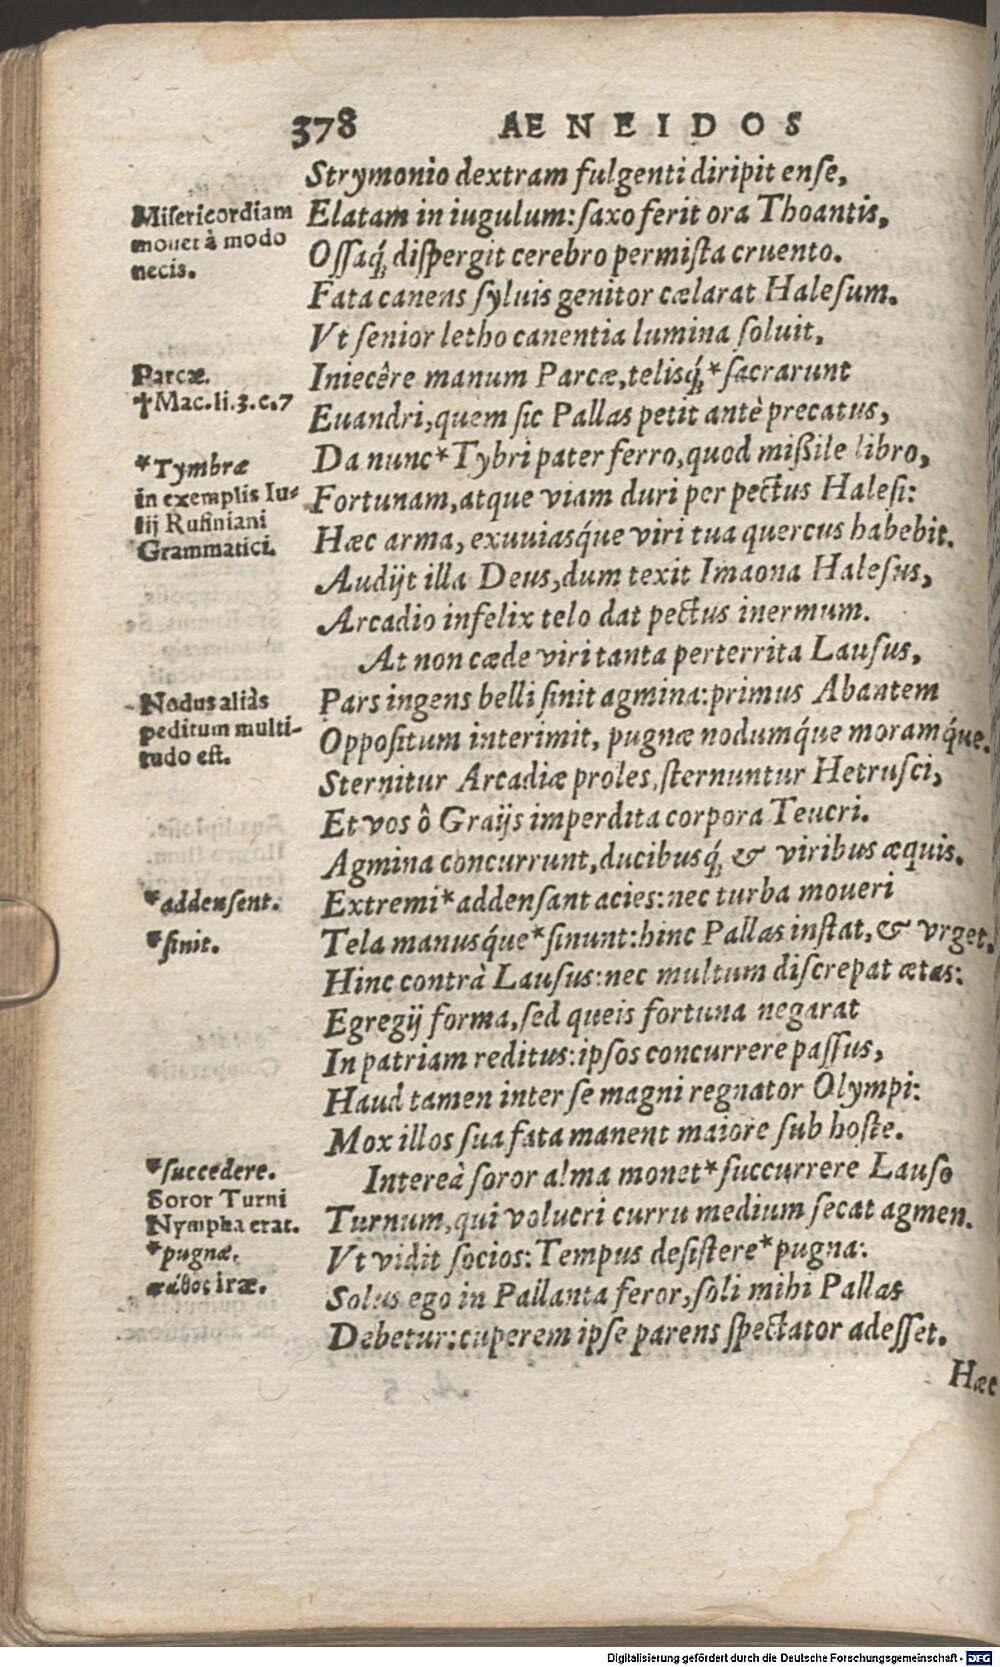 378 AENEIDOS
Strymonio dextram fulgenti diripit ense,
Elatam in iugulum: saxo ferit ora Thoantis,
Ossaq́; dispergit cerebro permista cruento.
Fata canens syluis genitor cælarat Halesum.
Vt senior letho canentia lumina soluit,
Iniecêre manum Parcæ, telisq́; *sacrarunt
Euandri, quem sic Pallas petit antè precatus,
Da nunc *Tybri pater ferro, quod mißile libro,
Fortunam, atque viam duri per pectus Halesi:
Hæc arma, exuuiasq́ue viri tua quercus habebit.
Audijt illa Deus, dum texit Imaona Halesus,
Arcadio infelix telo dat pectus inermum.
At non cæde viri tanta perterrita Lausus,
Pars ingens belli sinit agmina: primus Abantem
Oppositum interimit, pugnæ nodumq́ue moramq́ue.
Sternitur Arcadiæ proles, sternuntur Hetrusci,
Et vos ô Graijs imperdita corpora Teucri.
Agmina concurrunt, ducibusq́; & viribus æquis.
Extremi *addensant acies: nec turba moueri
Tela manusq́ue *sinunt: hinc Pallas instat, & vrget,
Hinc contrà Lausus: nec multum discrepat ætas:
Egregij forma, sed queis fortuna negarat
In patriam reditus: ipsos concurrere passus,
Haud tamen inter se magni regnator Olympi:
Mox illos sua fata manent maiore sub hoste.
Intereà soror alma monet *succurrere Lauso
Turnum, qui volucri curru medium secat agmen.
Vt vidit socios: Tempus desistere *pugna:
Solus ego in Pallanta feror, soli mihi Pallas
Debetur: cuperem ipse parens spectator adesset.
Hæc
Misericordiam
mouet à modo
necis.
Parcæ.
†Mac. li. 3. c. 7
*Tymbræ
in exemplis Iu-
lij Rufiniani
Grammatici.
Nodus aliàs
peditum multi-
tudo est.
*addensent.
*sinit.
*succedere.
Soror Turni
Nympha erat.
*pugnæ.
πάθος iræ.
Digitalisierung gefördert durch die Deutsche Forschungsgemeinschaft - DFG